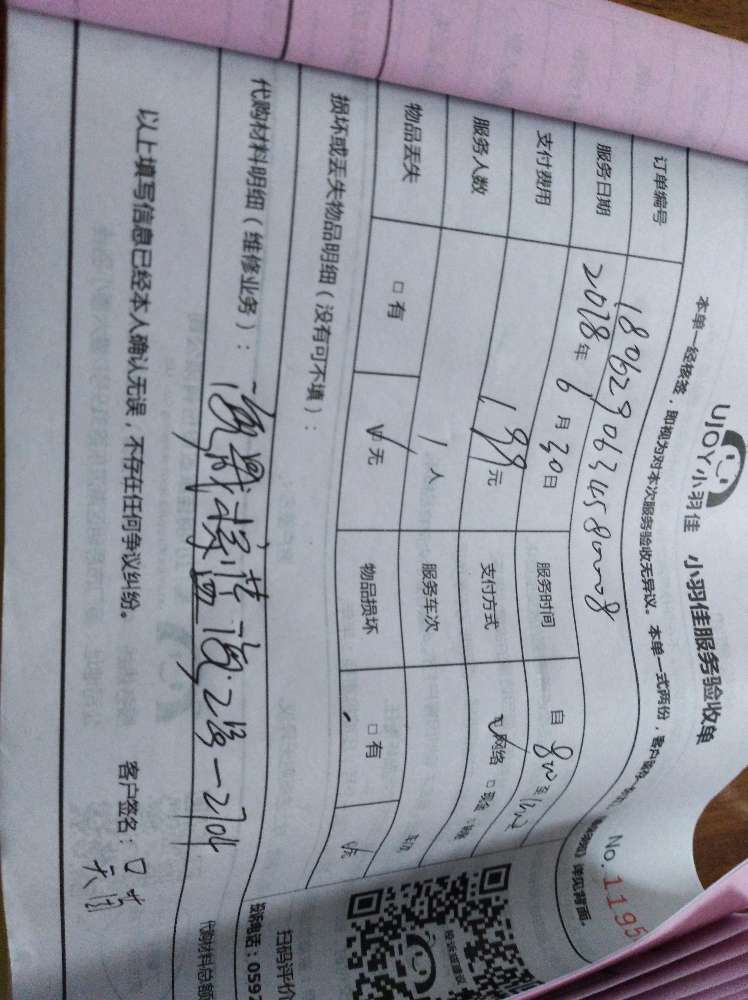 UJOY小羽佳 小羽佳服务验收单
本单一经核签，即视为对本次服务验收无异议。本单一式两份，客户
详见背面。
No.1195
订单编号 180629063458000008
服务日期 2018年6月30日 服务时间 自 至
支付费用 198元 支付方式 网络 □现金
服务人数 1人 服务车次 车次
物品丢失 □有 无 物品损坏 □有 无
损坏或丢失物品明细（没有可不填）：
代购材料明细（维修业务）： 2号一2704
代购材料总额
以上填写信息已经本人确认无误，不存在任何争议纠纷。
客户签名：
扫码评价
投诉电话：0592